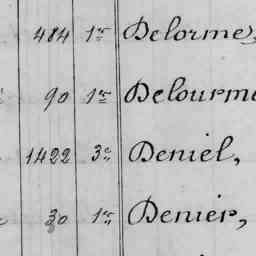 484 1er Delorme,
90 1er Delourme
1422 3e Deniel,
30 1er Denier,